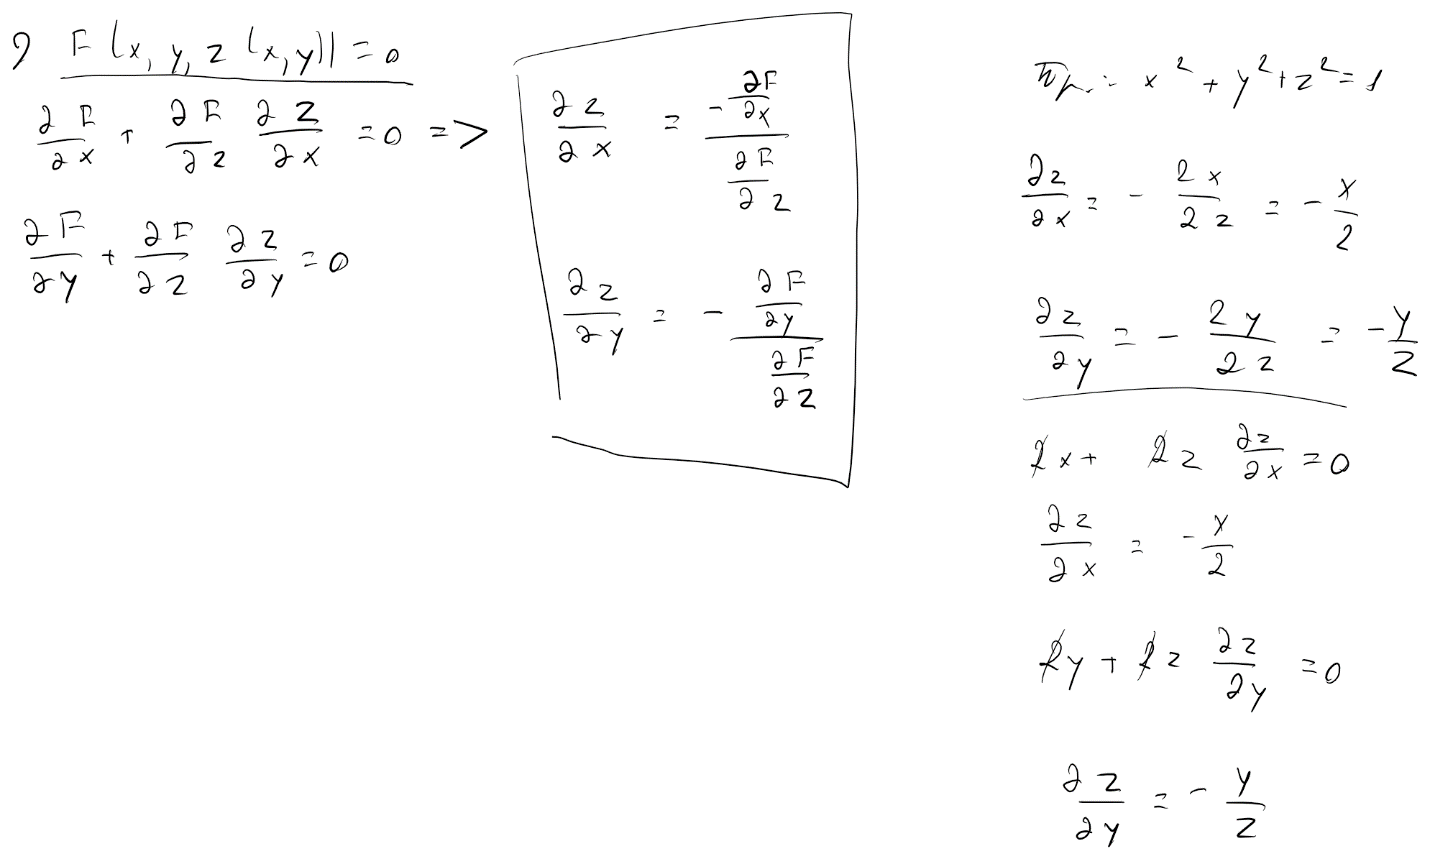 2) F(x, y, z(x,y)) = 0
∂F/∂x + ∂F/∂z ∂z/∂x = 0 =>
∂F/∂y + ∂F/∂z ∂z/∂y = 0
∂z/∂x = (-∂F/∂x)/(∂F/∂z)
∂z/∂y = - (∂F/∂y)/(∂F/∂z)
Пр.: x² + y² + z² = 1
∂z/∂x = - 2x/2z = - x/z
∂z/∂y = - 2y/2z = - y/z
2x + 2z ∂z/∂x = 0
∂z/∂x = - x/z
2y + 2z ∂z/∂y = 0
∂z/∂y = - y/z